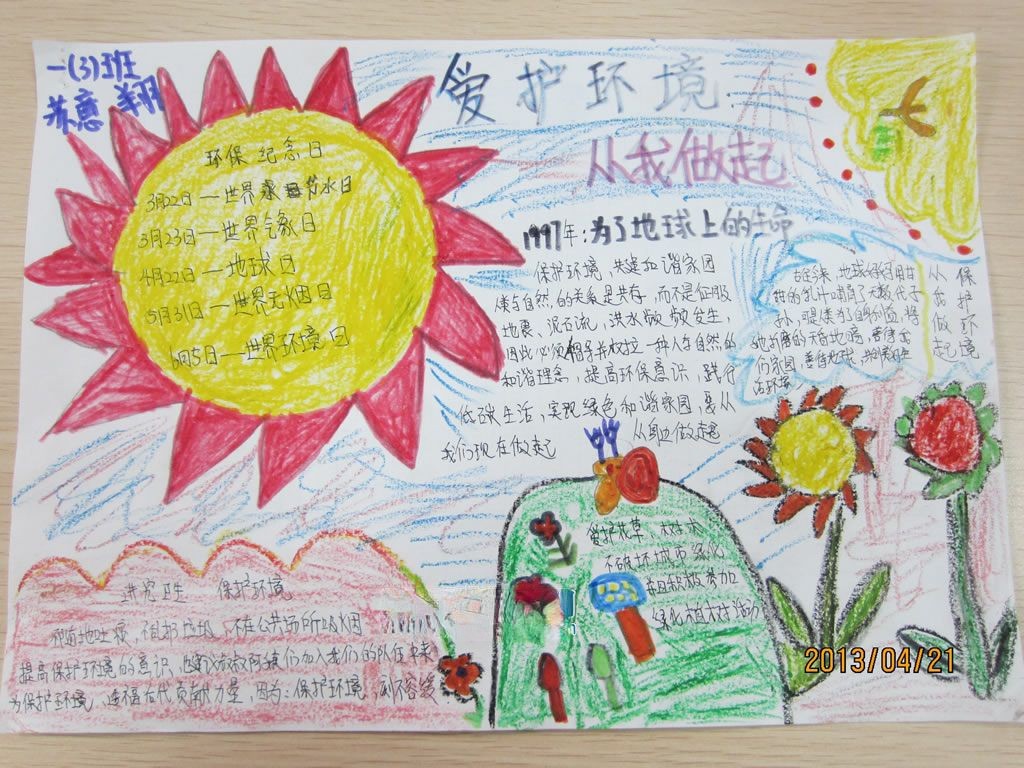 一(3)班
苏意翔
爱护环境
从我做起
环保纪念日
3月22日—世界节水日
3月23日—世界气象日
4月22日—地球日
5月31日—世界无烟日
6月5日—世界环境日
1997年:为了地球上的生命
保护环境,共建和谐家园
类与自然的关系是共存,而不是征服
地震、泥石流,洪水频频发生
因此必须倡导并树立一种人与自然的
和谐理念,提高环保意识,践行
低碳生活,实现绿色和谐家园,要从
我们现在做起 从身边做起
古往今来,地球母亲用甘
甜的乳汁哺育了无数代子
孙
们家园,善待地球
保护环境
从我做起
讲究卫生 保护环境
不随地吐痰,不乱扔垃圾,不在公共场所吸烟
提高保护环境的意识
为保护环境,造福后代贡献力量,因为:保护环境,刻不容缓
爱护花草、树木
不破坏城市绿化
并且积极参加
绿化植树活动
2013/04/21